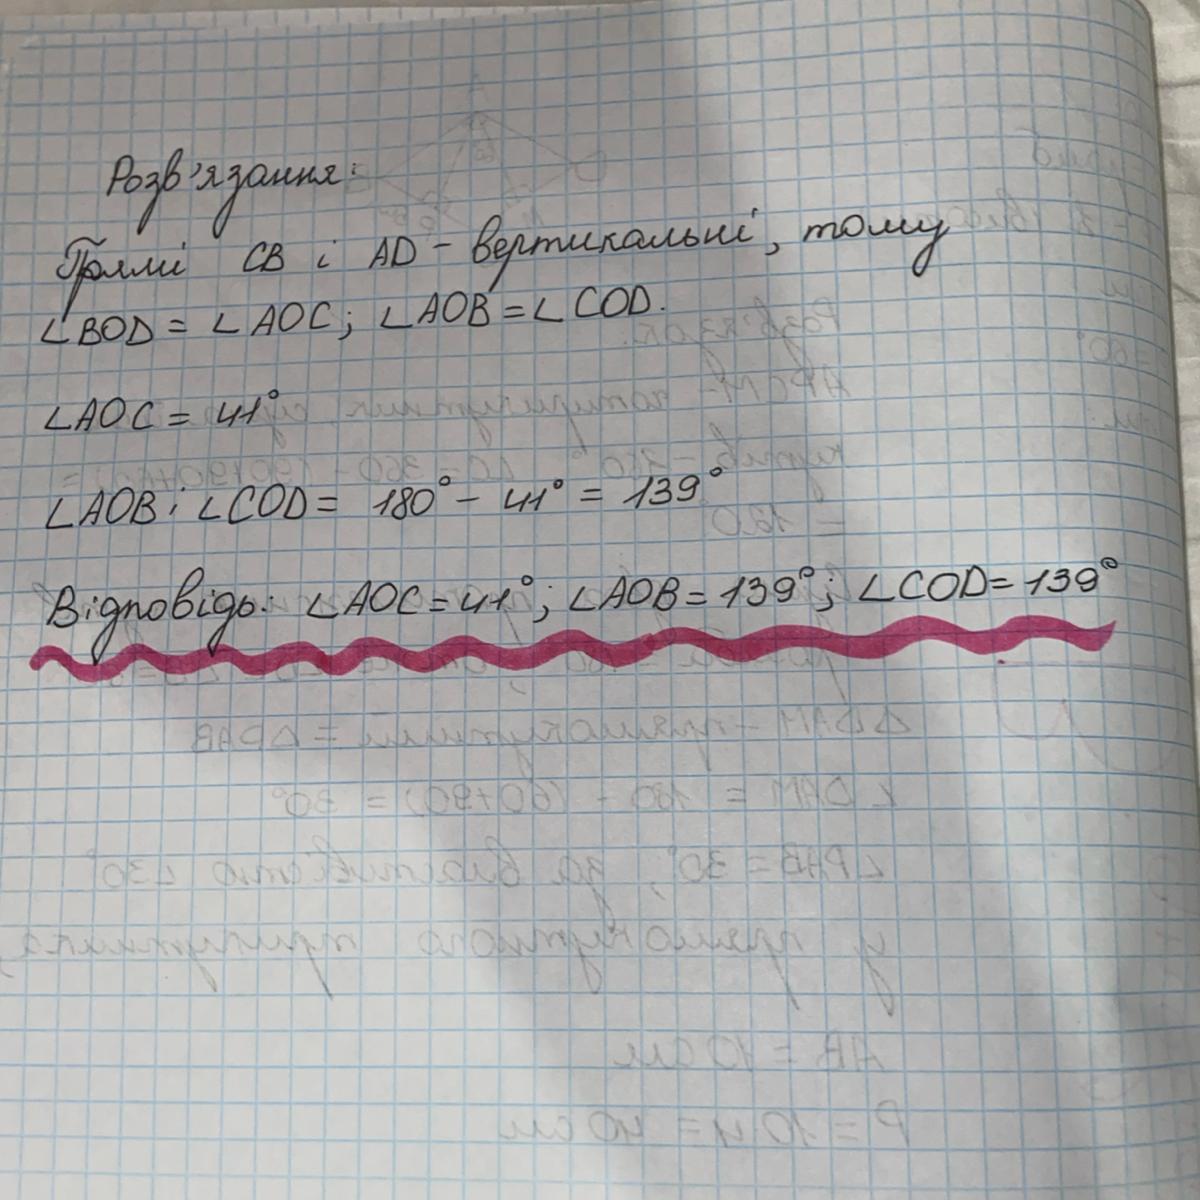 Розв'язання:
Прямі CB і AD - вертикальні, тому
∠BOD = ∠AOC; ∠AOB = ∠COD.
∠AOC = 41°
∠AOB і ∠COD = 180° - 41° = 139°
Відповідь: ∠AOC = 41°; ∠AOB = 139°; ∠COD = 139°